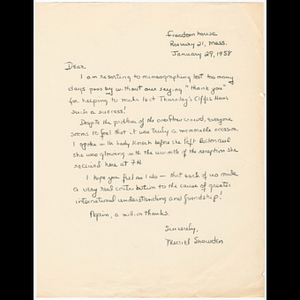 Freedom House
Roxbury 21, Mass.
January 29, 1958
Dear
I am resorting to mimeographing lest too many
days pass by without our saying "thank you"
for helping to make last Thursday's Coffee Hour
such a success!
Despite the problem of the overflow crowd, everyone
seems to feel that it was truly a memorable occasion.
I spoke with Lady Knish before she left Boston and
she was glowing with the warmth of the reception she
received here at 7H
I hope you feel as I do - that each of us made
a very real contribution to the cause of greater
international understanding and friendship!
Again, a million thanks.
Sincerely,
Muriel Snowden